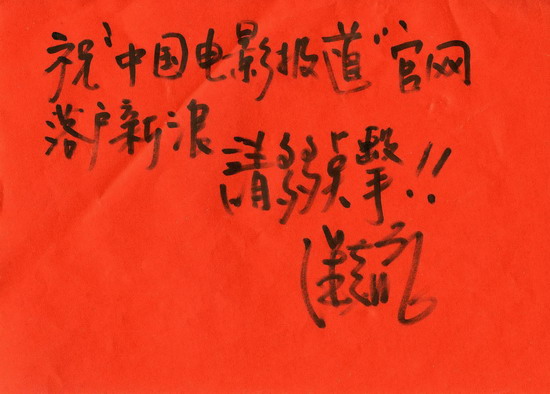 祝“中国电影报道”官网
落户新浪
请多多点擊!!